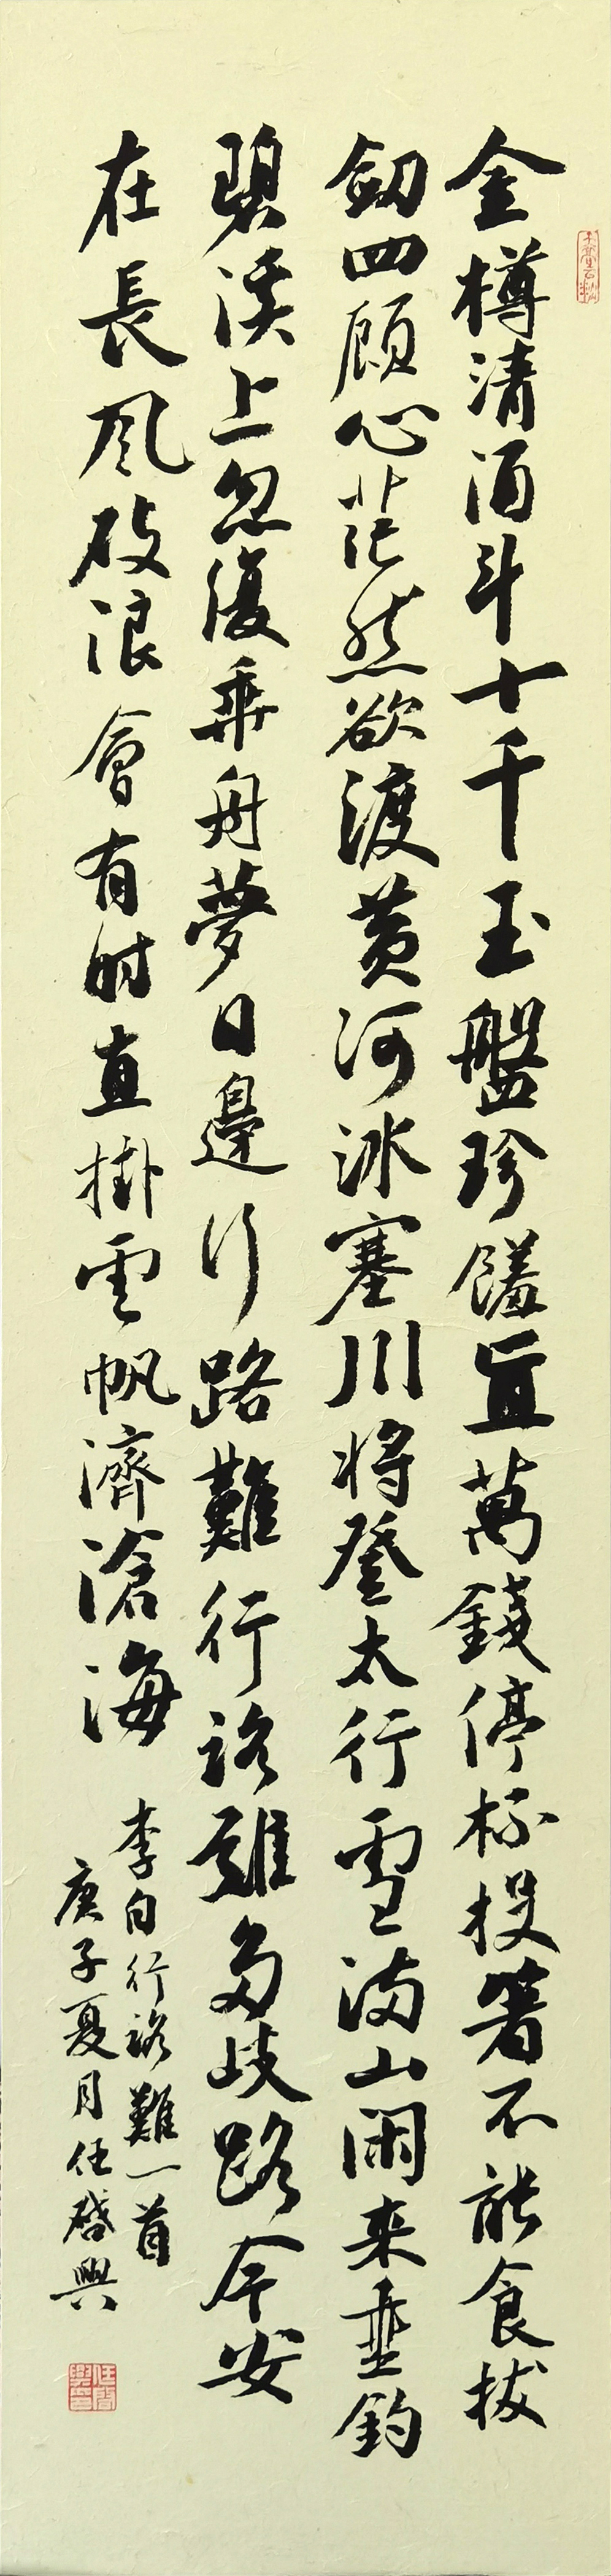 金樽清酒斗十千玉盤珍饈直萬錢停杯投箸不能食拔
劔四顾心茫然欲渡黄河冰塞川将登太行雪满山闲来垂釣
碧溪上忽復乘舟夢日邊行路難行路難多歧路今安
在長風破浪會有时直掛雲帆濟滄海
李白行路難一首
庚子夏月任啓興